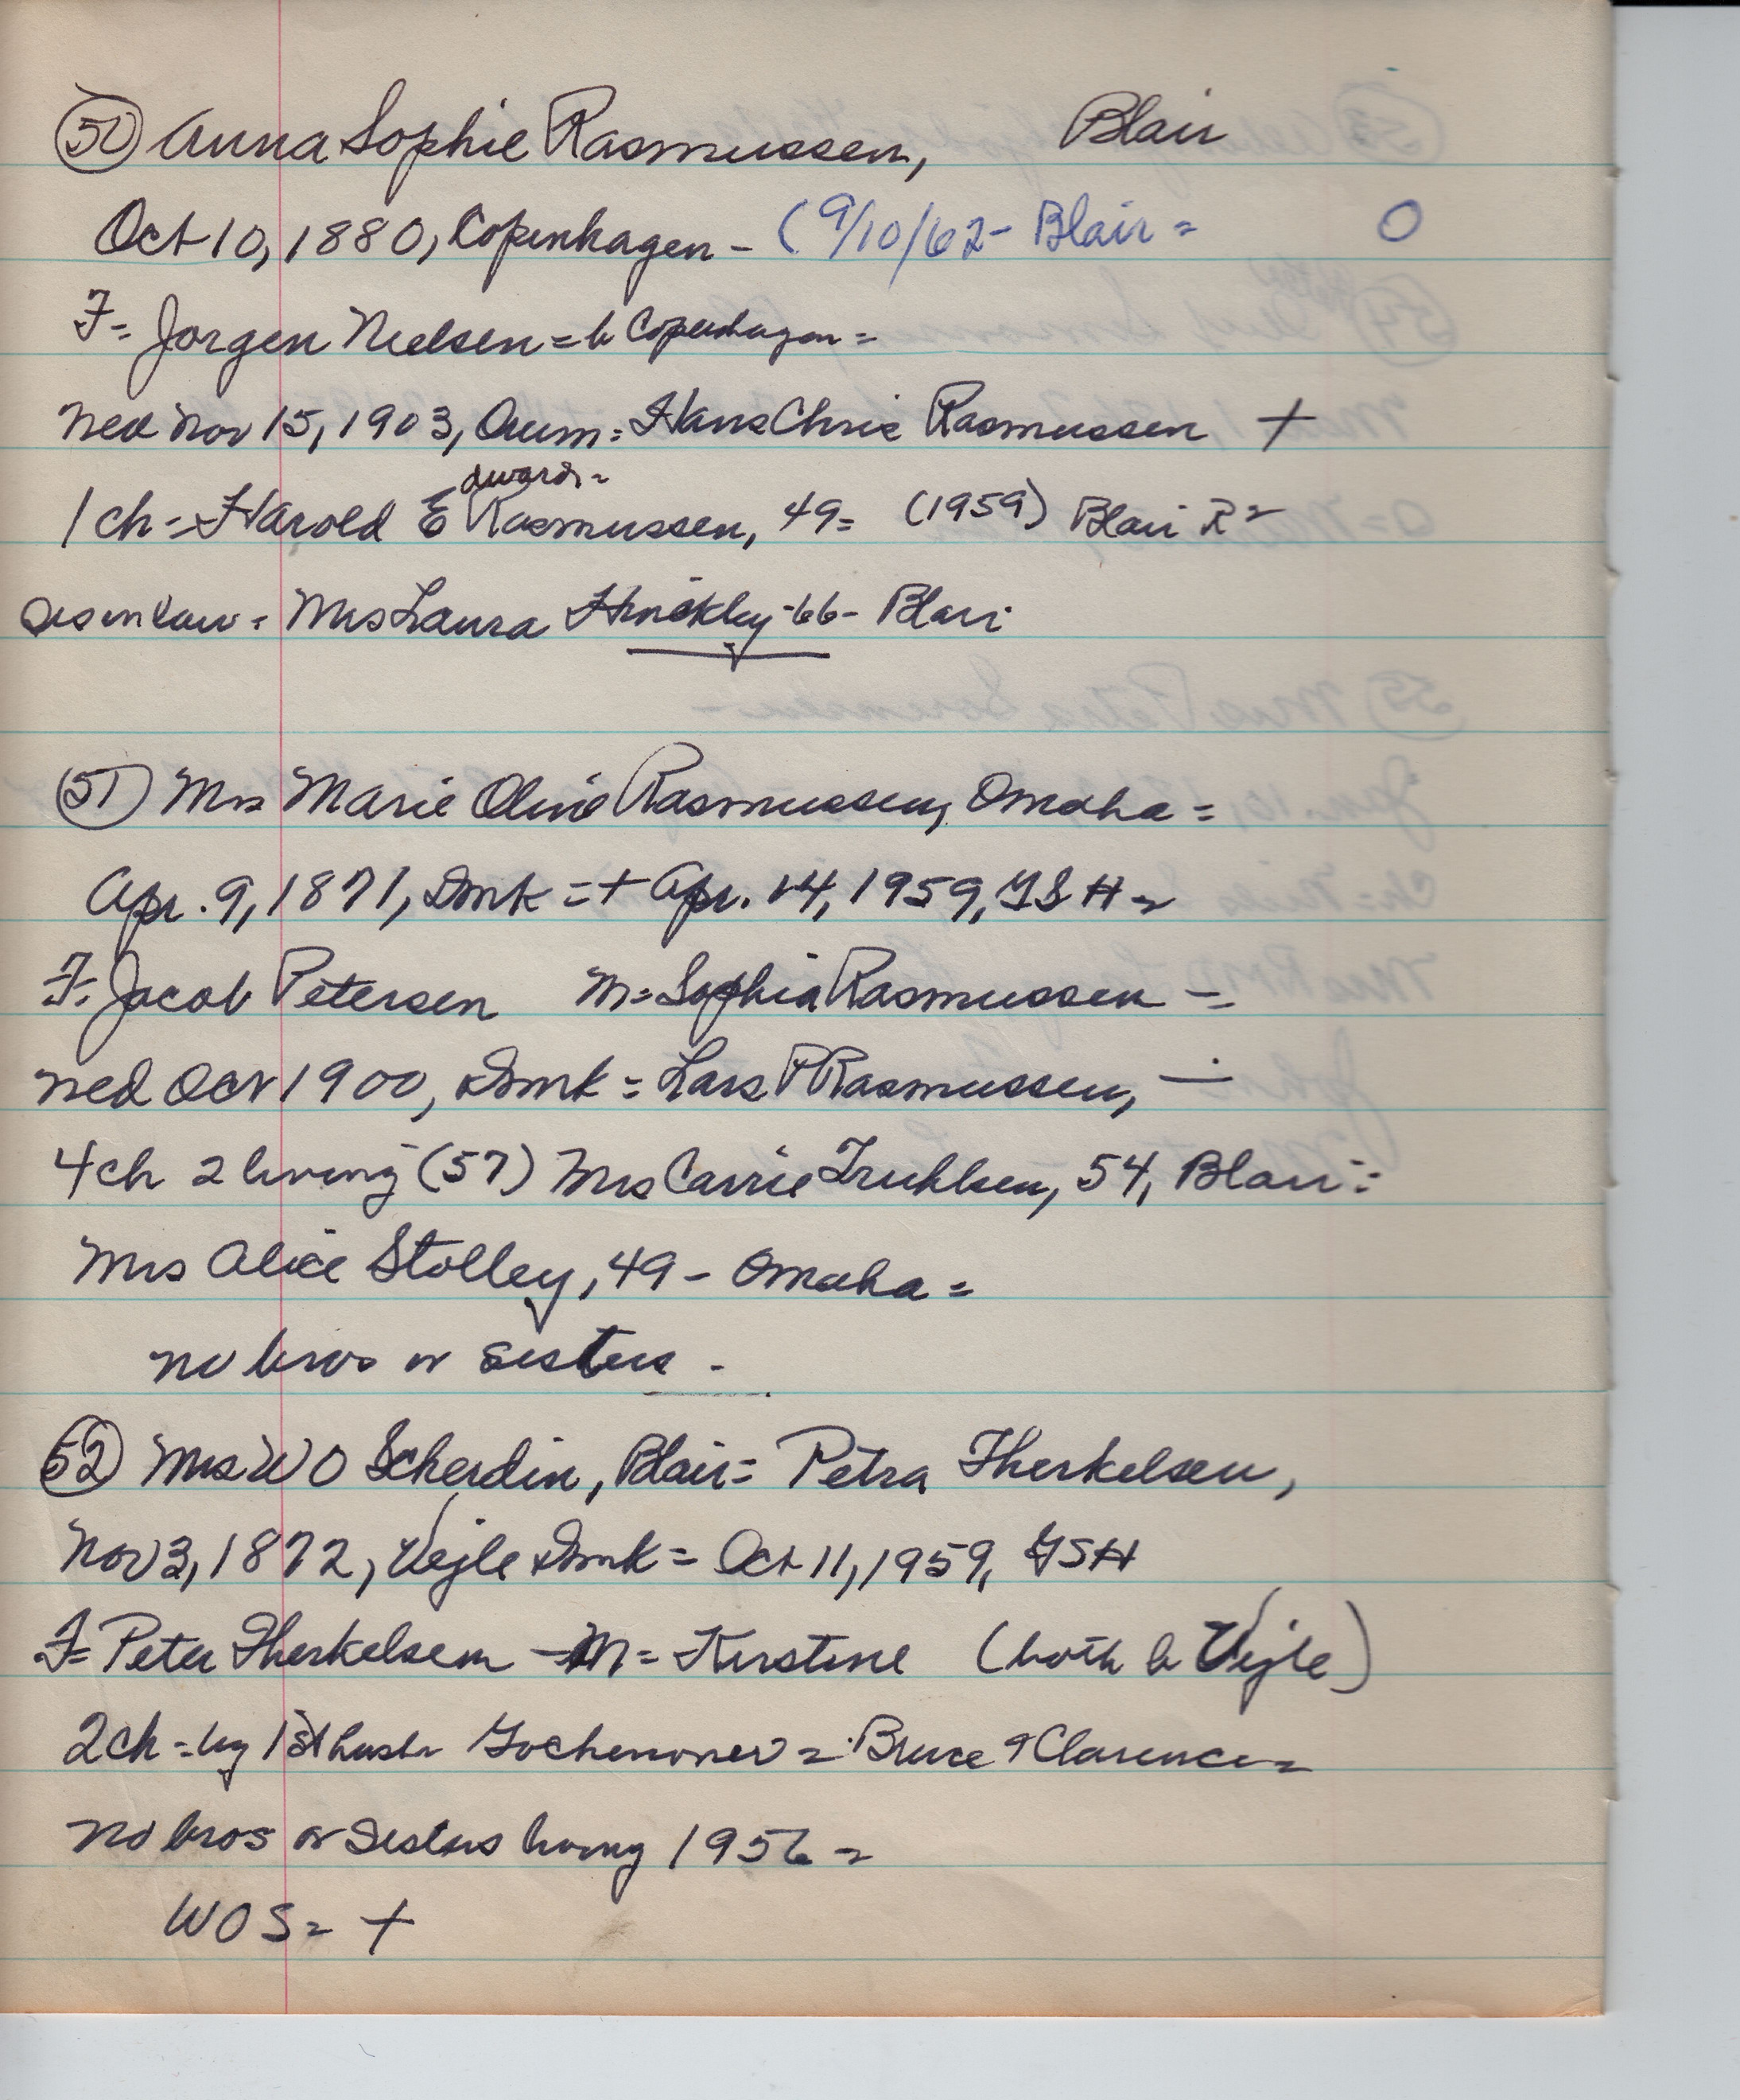 50 Anna Sophie Rasmussen, Blair
Oct 10, 1880, Copenhagen - (9/10/62 - Blair = O
F = Jorgen Nielsen = b Copenhagen =
med Nov 15, 1903, = Hans Chris Rasmussen +
1 ch = Harold Edward = Rasmussen, 49 = (1959) Blair R =
a sis in law = Mrs Laura Hinckley - 66 - Blair
51 Mrs Marie Oline Rasmussen, Omaha =
Apr. 9, 1871, Dmk = + Apr. 14, 1959, GSH =
F = Jacob Petersen M = Sophia Rasmussen =
med Oct 1900, Dmk = Lars P Rasmussen, -
4 ch 2 living (57) Mrs Carrie Truhlsen, 54, Blair =
Mrs Alice Stolley, 49 - Omaha =
no bros or sisters -
52 Mrs W O Scherdin, Blair = Petra Therkelsen,
Nov 3, 1872, Vejle Dmk = Oct 11, 1959, GSH
F = Peter Therkelsen - M = Kirstine (both b Vejle)
2 ch = by 1st husb = Bruce & Clarence =
no bros or sisters living 1956 =
WOS = +